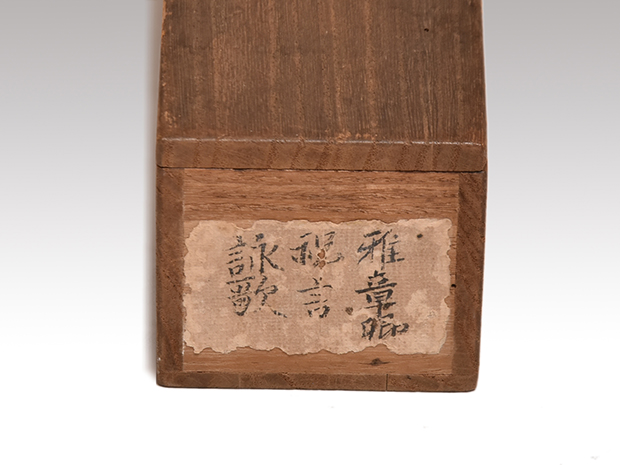 雅章卿
祝言
詠歌